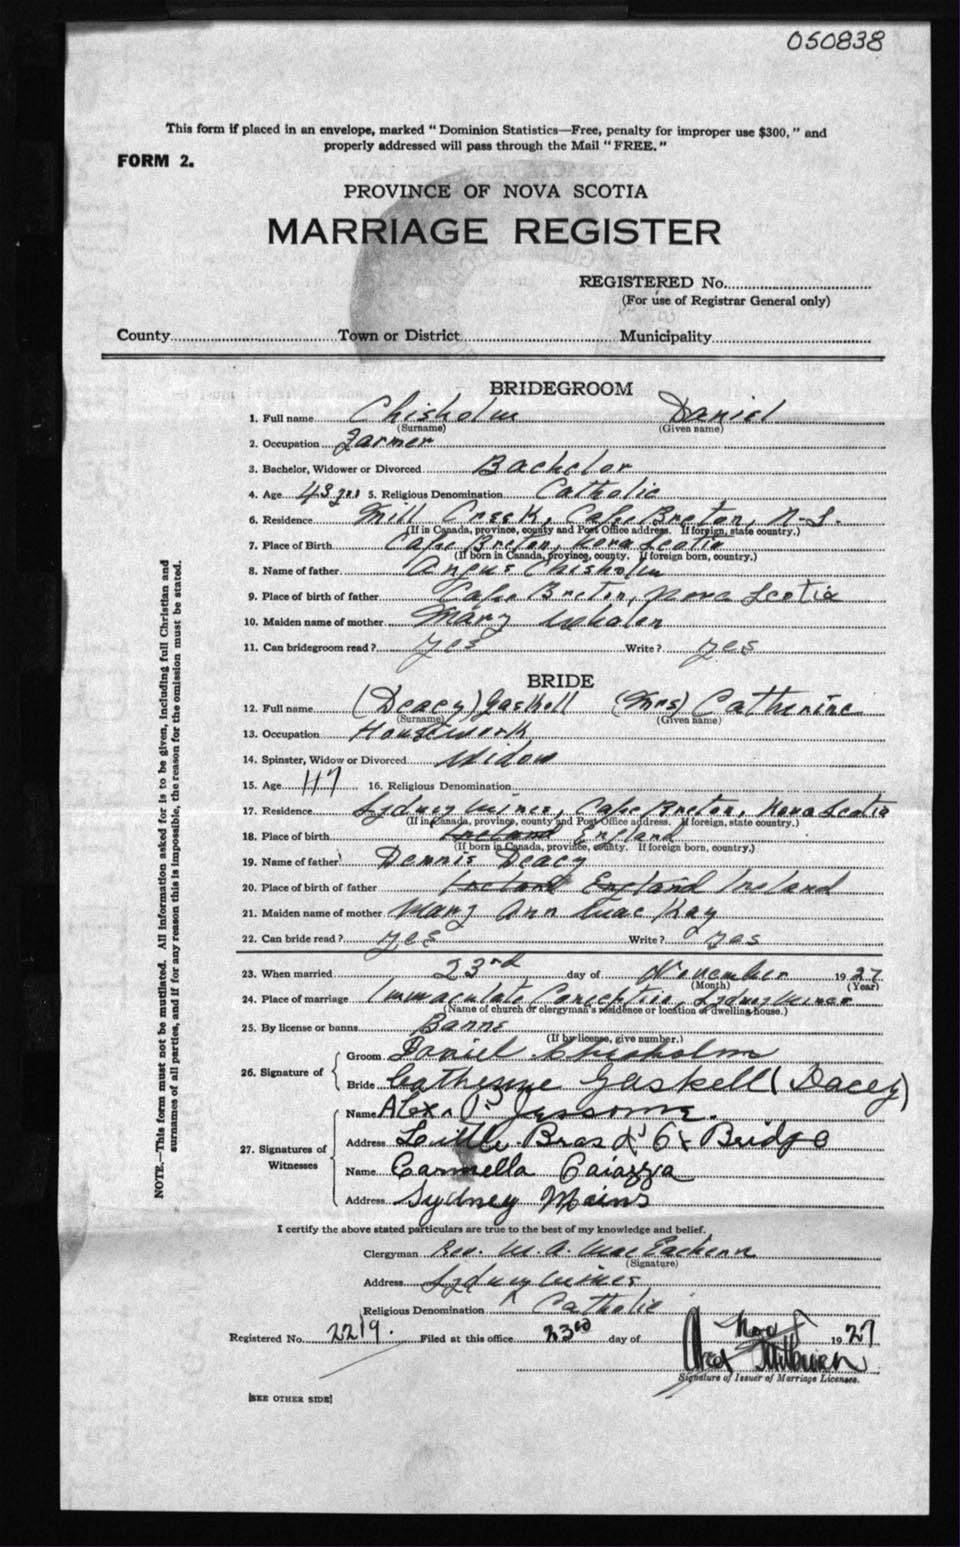 050838
This form if placed in an envelope, marked "Dominion Statistics—Free, penalty for improper use $300," and
properly addressed will pass through the Mail "FREE."
FORM 2.
PROVINCE OF NOVA SCOTIA
MARRIAGE REGISTER
REGISTERED No.
(For use of Registrar General only)
County Town or District Municipality
BRIDEGROOM
1. Full name Chisholm Daniel
(Surname) (Given name)
2. Occupation Farmer
3. Bachelor, Widower or Divorced Bachelor
4. Age 43 yrs 5. Religious Denomination Catholic
6. Residence Mill Creek, Cape Breton, N.S.
(If in Canada, province, county and Post Office address. If foreign, state country.)
7. Place of Birth Cape Breton, Nova Scotia
(If born in Canada, province, county. If foreign born, country.)
8. Name of father Angus Chisholm
9. Place of birth of father Cape Breton, Nova Scotia
10. Maiden name of mother Mary Whalen
11. Can bridegroom read? yes Write? yes
BRIDE
12. Full name (Deacy) Gaskell (Mrs) Catherine
(Surname) (Given name)
13. Occupation Housework
14. Spinster, Widow or Divorced Widow
15. Age 47 16. Religious Denomination
17. Residence Sydney Mines, Cape Breton, Nova Scotia
(If in Canada, province, county and Post Office address. If foreign, state country.)
18. Place of birth Ireland England
(If born in Canada, province, county. If foreign born, country.)
19. Name of father Dennis Deacy
20. Place of birth of father Ireland England Ireland
21. Maiden name of mother Mary Ann MacKay
22. Can bride read? yes Write? yes
23. When married 23rd day of November 1927
(Month) (Year)
24. Place of marriage Immaculate Conception, Sydney Mines
(Name of church or clergyman's residence or location of dwelling house.)
25. By license or banns Banns
(If by license, give number.)
26. Signature of
Groom Daniel Chisholm
Bride Catherine Gaskell (Dacey)
27. Signatures of Witnesses
Name Alex P. Jessome.
Address Little Bras d'Or Bridge
Name Carmella Caiazza
Address Sydney Mains
I certify the above stated particulars are true to the best of my knowledge and belief.
Clergyman Rev. M. A. MacEachern
(Signature)
Address Sydney Mines
Religious Denomination Catholic
Registered No. 2219. Filed at this office 23rd day of Nov 1927
Milburn
Signature of Issuer of Marriage Licenses.
[SEE OTHER SIDE]
NOTE.—This form must not be mutilated. All information asked for is to be given, including full Christian and
surnames of all parties, and if for any reason this is impossible, the reason for the omission must be stated.